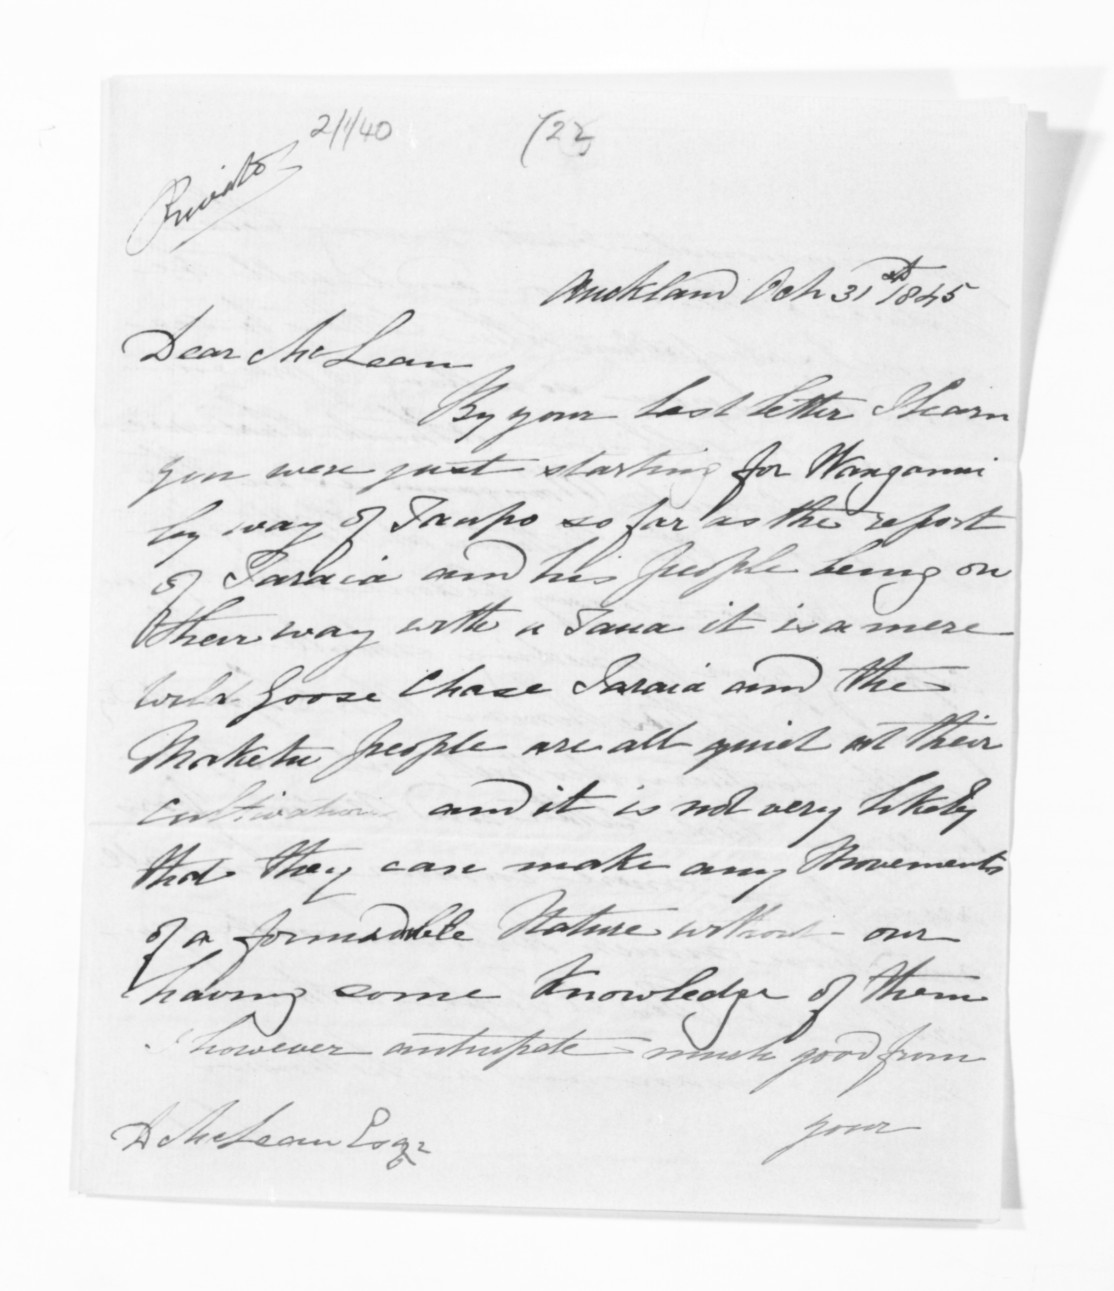 2/1/40
(22)
Private
Auckland Oct 31st 1845
Dear McLean
By your last letter I learn
you were just starting for Wanganui
by way of Taupo so far as the report
of Taraia and his people being on
their way with a Taua it is a mere
wild goose chase Taraia and the
Maketu people are all quiet at their
cultivation and it is not very likely
that they can make any Movements
of a formadable Nature without our
having some Knowledge of them
I however anticipate much good from
your
D McLean Esqr